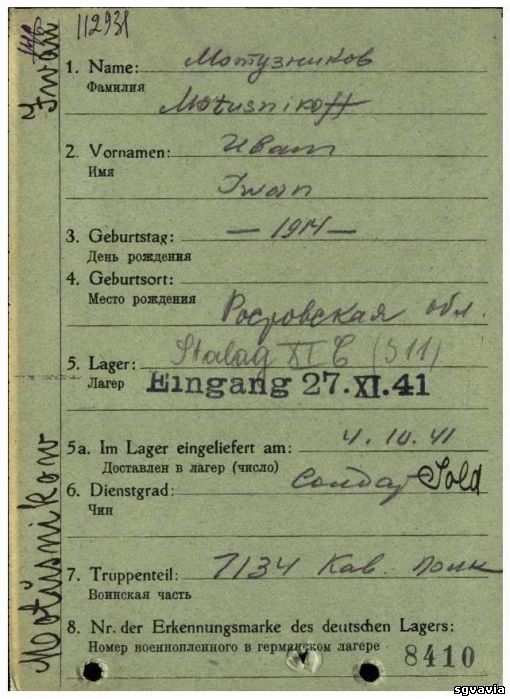 112931
1. Name: Мотузников
Фамилия
Motusnikoff
2. Vornamen: Иван
Имя
Iwan
3. Geburtstag: — 1914 —
День рождения
4. Geburtsort:
Место рождения
Ростовская обл.
5. Lager: Stalag XI C (311)
Лагер
Eingang 27.XI.41
5a. Im Lager eingeliefert am: 4.10.41
Доставлен в лагер (число)
6. Dienstgrad: Солдат Sold
Чин
7. Truppenteil: 7134 Кав. полк
Воинская часть
8. Nr. der Erkennungsmarke des deutschen Lagers:
Номер военнопленного в германском лагере
8410
Motüsnikow
Iwan
sgvavia